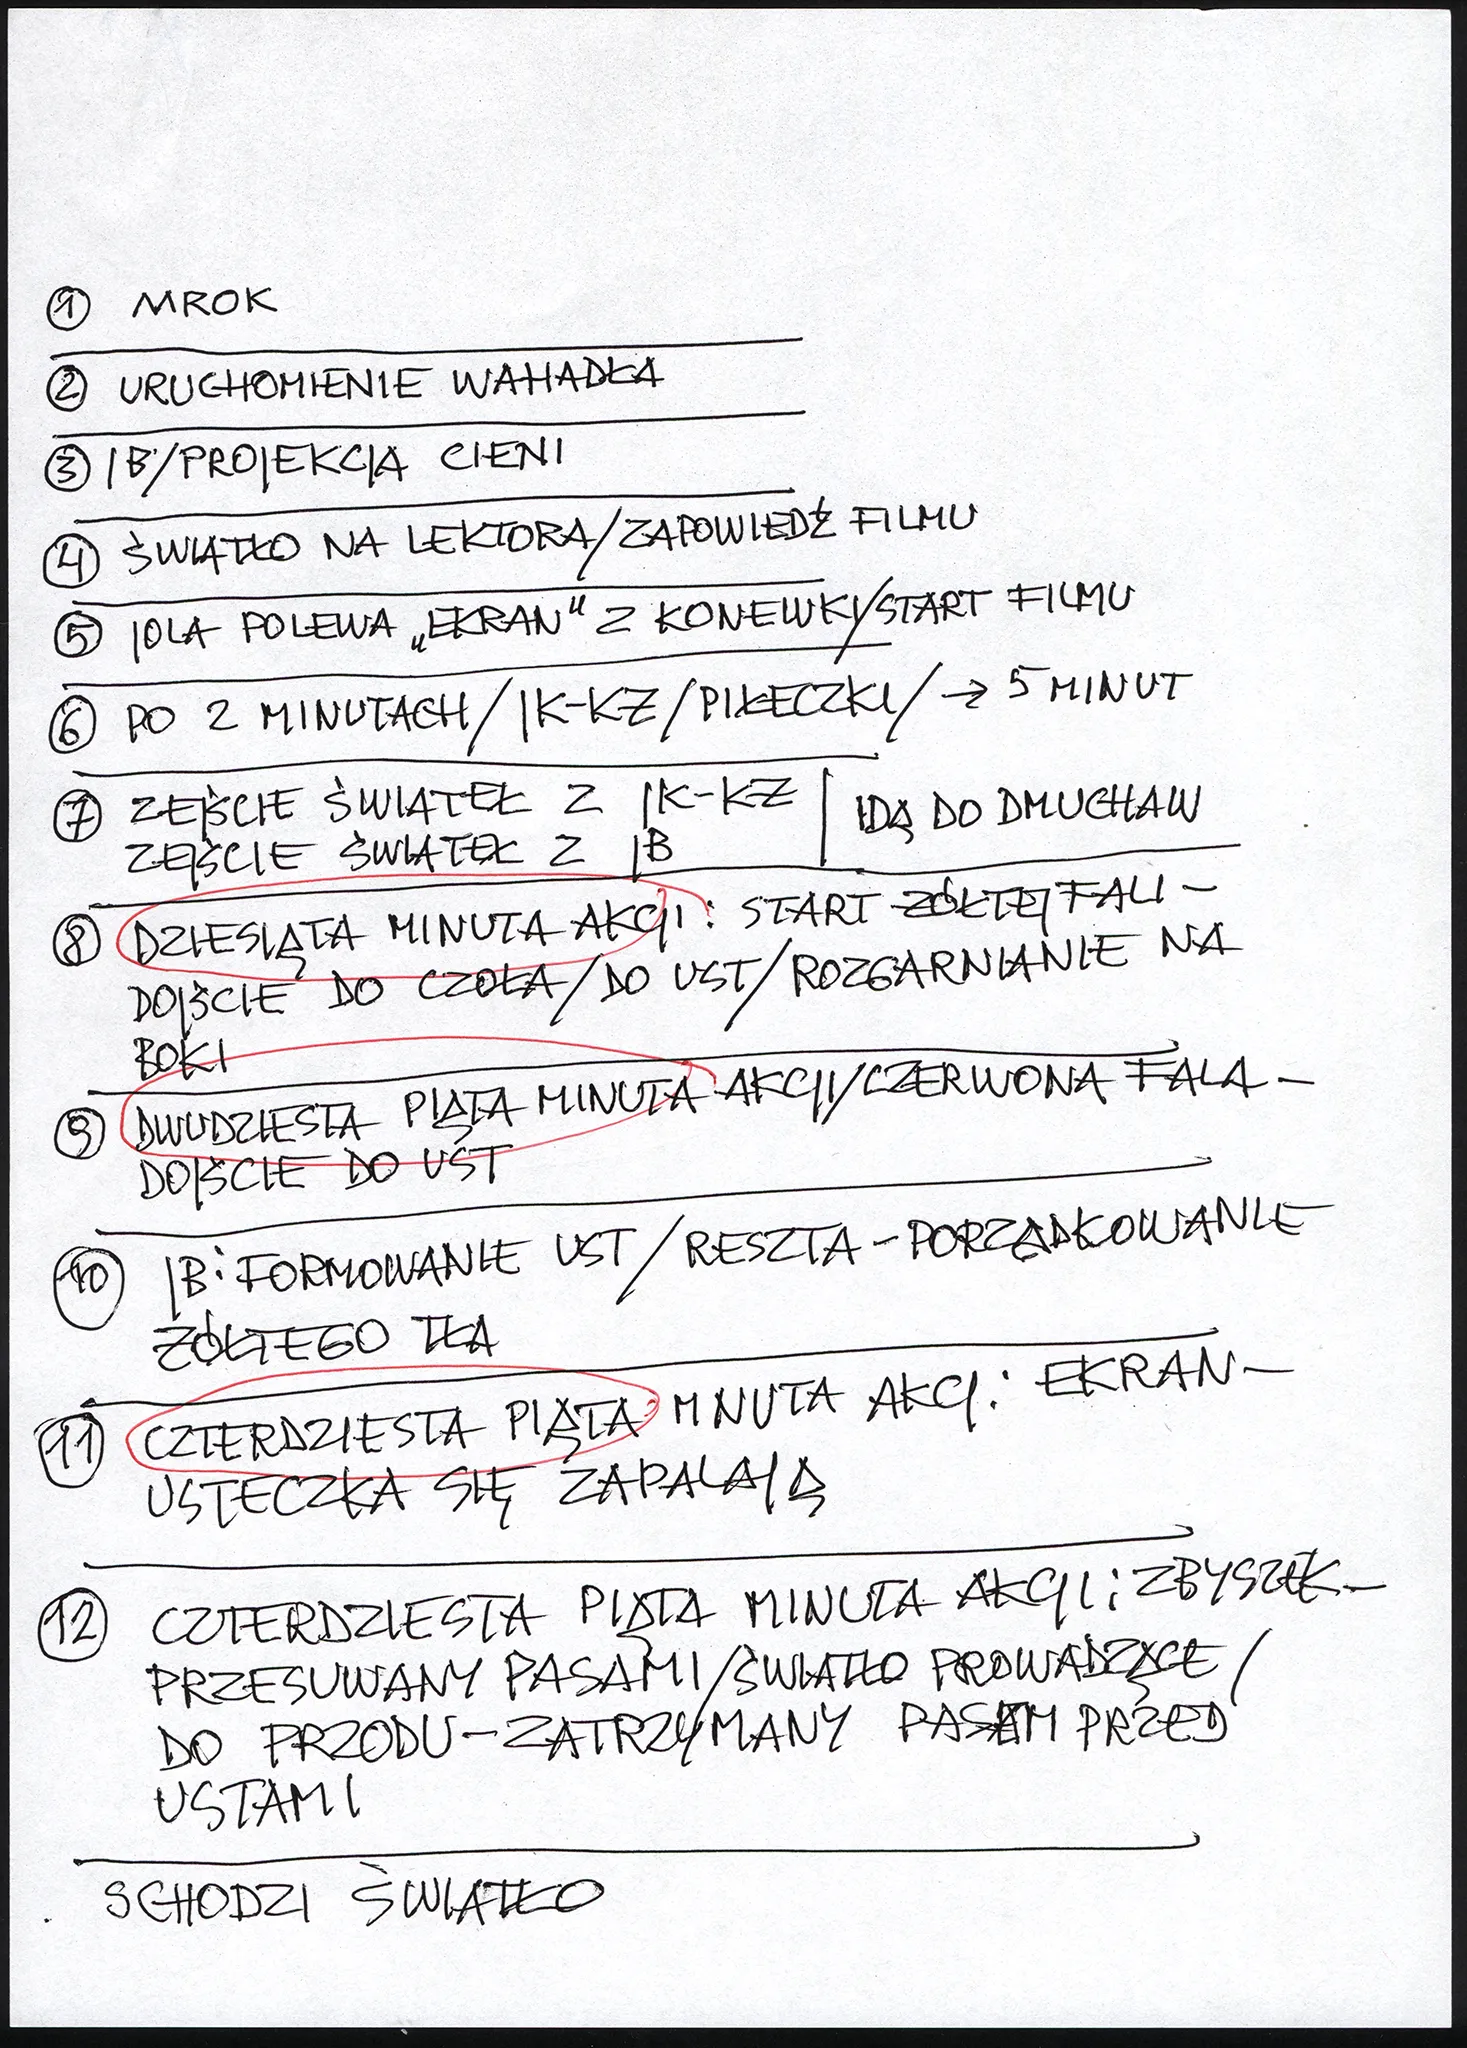 ① MROK
② URUCHOMIENIE WAHADŁA
③ JB/PROJEKCJA CIENI
④ ŚWIATŁO NA LEKTORA/ZAPOWIEDŹ FILMU
⑤ JOLA POLEWA „EKRAN" Z KONEWKI/START FILMU
⑥ PO 2 MINUTACH/JK-KZ/PIŁECZKI/→ 5 MINUT
⑦ ZEJŚCIE ŚWIATEŁ Z JK-KZ | IDĄ DO DMUCHAW
ZEJŚCIE ŚWIATEŁ Z JB
⑧ DZIESIĄTA MINUTA AKCJI: START ŻÓŁTEJ FALI -
DOJŚCIE DO CZOŁA/DO UST/ROZGARNIANIE NA
BOKI
⑨ DWUDZIESTA PIĄTA MINUTA AKCJI/CZERWONA FALA -
DOJŚCIE DO UST
⑩ JB: FORMOWANIE UST/RESZTA - PORZĄDKOWANIE
ŻÓŁTEGO TŁA
⑪ CZTERDZIESTA PIĄTA MNUTA AKCJ: EKRAN -
USTECZKA SIĘ ZAPALAJĄ
⑫ CZTERDZIESTA PIĄTA MINUTA AKCJI: ZBYSZEK -
PRZESUWANY PASAMI/ŚWIATŁO PROWADZĄCE/
DO PRZODU - ZATRZYMANY PASEM PRZED
USTAMI
SCHODZI ŚWIATŁO